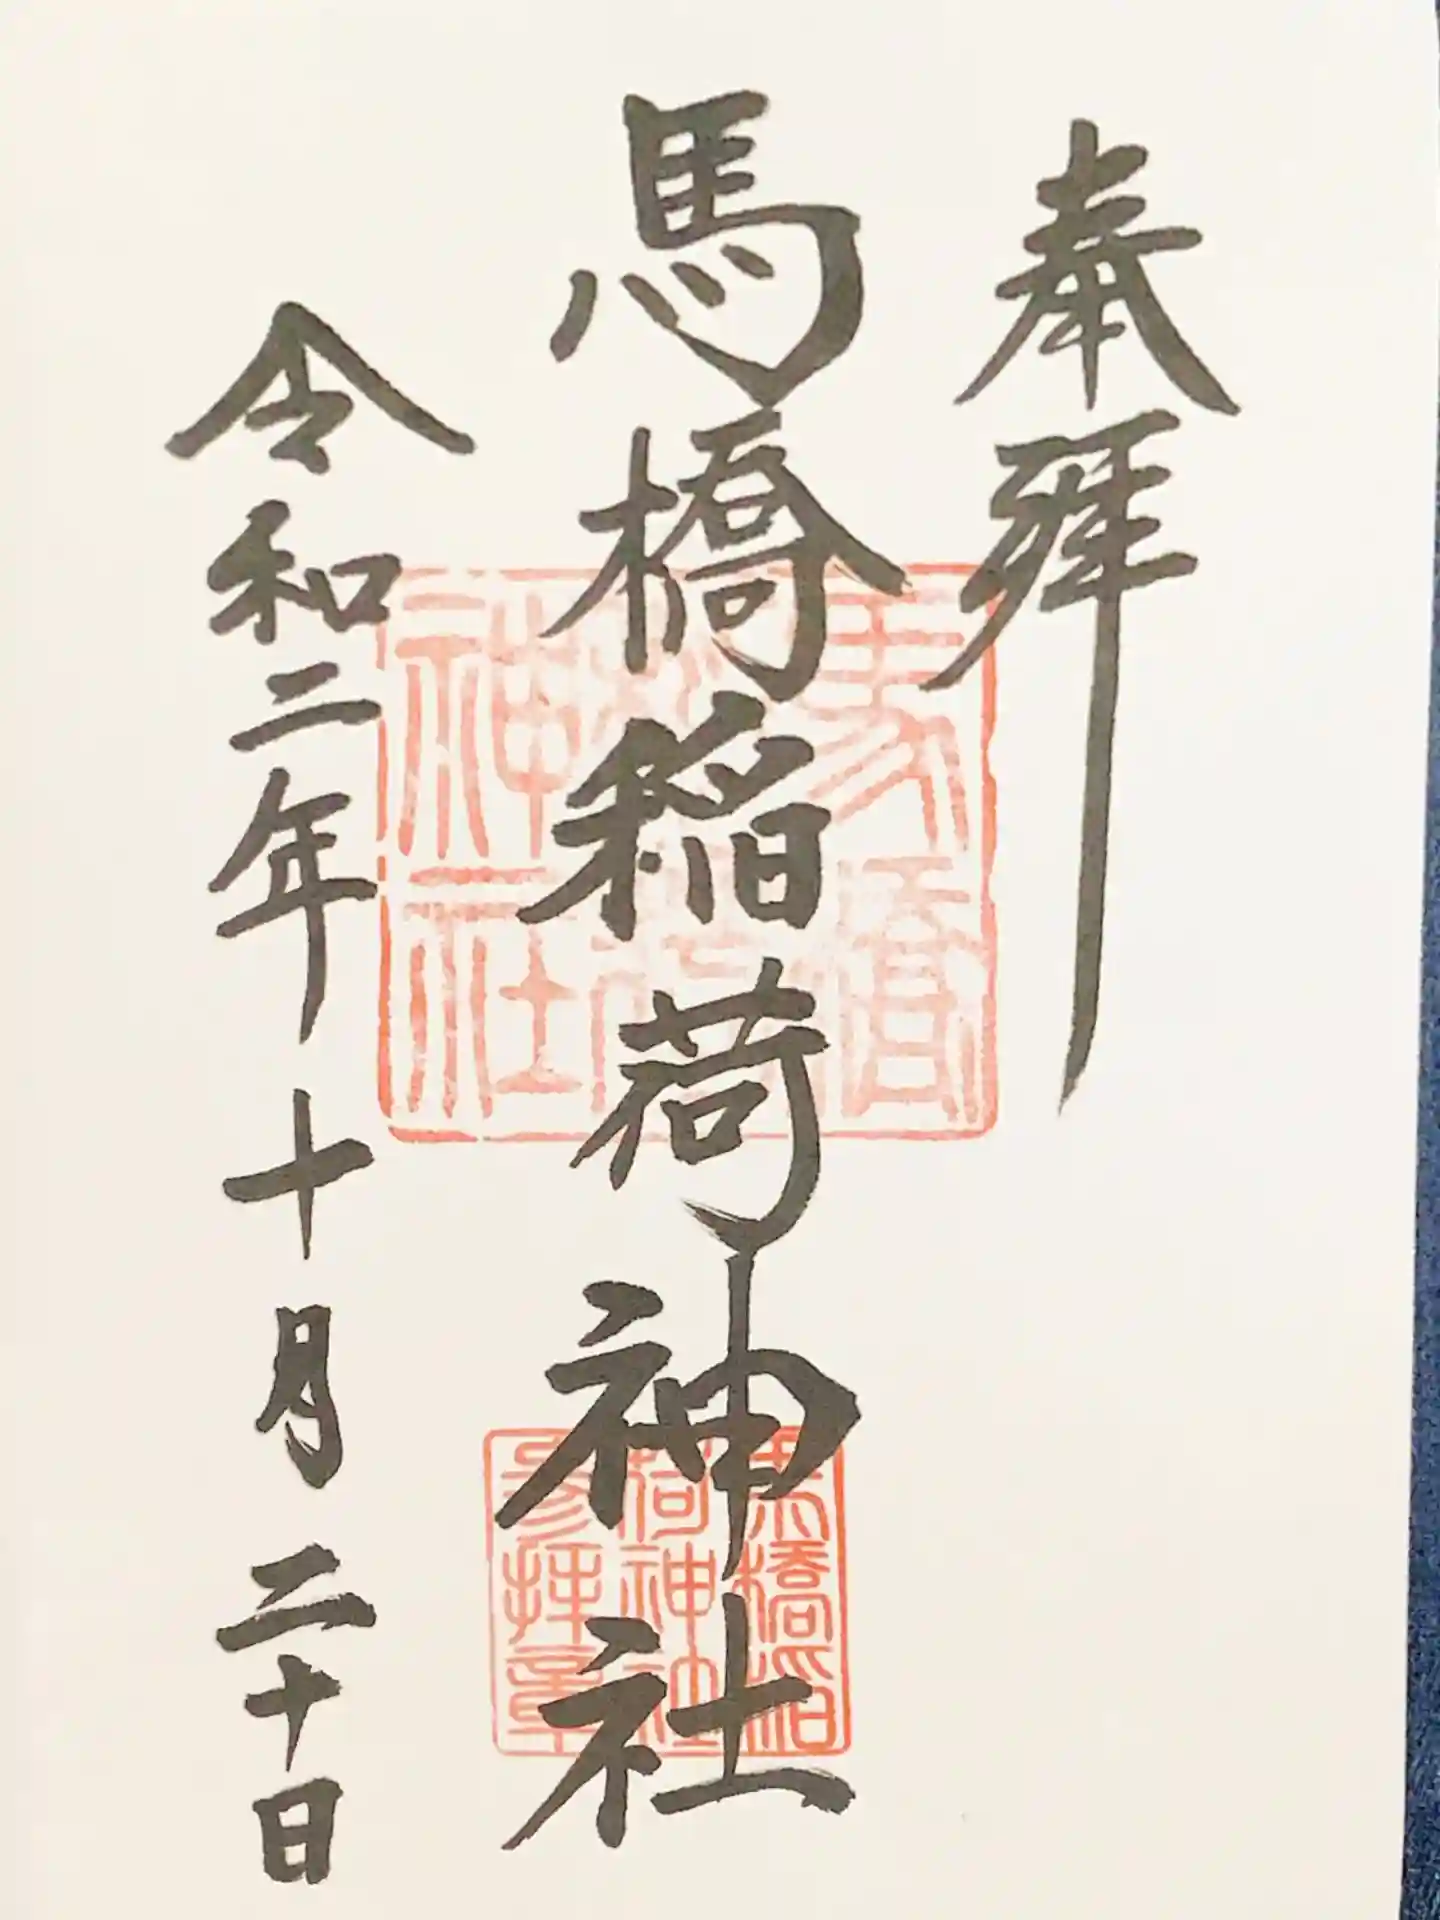 奉拜
馬橋稲荷神社
令和二年十月二十日
馬橋
稲荷
神社
馬橋稲
荷神社
参拝章